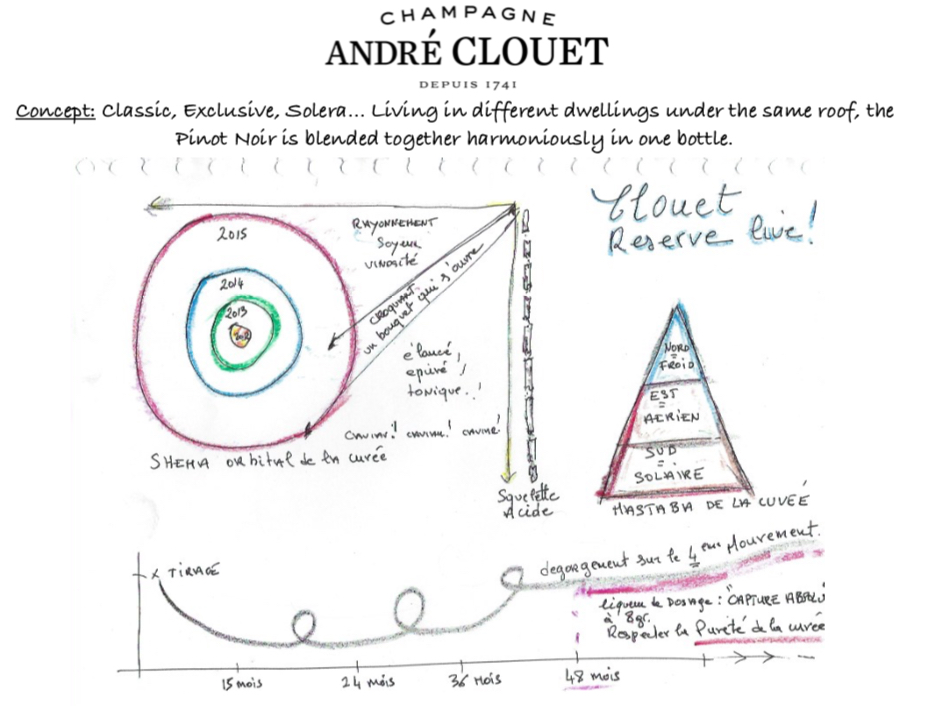 CHAMPAGNE
ANDRÉ CLOUET
DEPUIS 1741
Concept: Classic, Exclusive, Solera... Living in different dwellings under the same roof, the
Pinot Noir is blended together harmoniously in one bottle.
Clouet
Reserve live!
RAYONNEMENT
Soyeux
VINOSITÉ
2015
2014
2013
CROQUANT
un bouquet qui s'ouvre
élancé,
épuré,
tonique..!
SHEMA ORbital de la cuvée
Squelette
Acide
NORD
=
FROID
EST
=
AERIEN
SUD
=
SOLAIRE
MASTABA DE LA CUVEÉ
x TIRAGE
degorgement sur le 4eme Mouvement.
liqueur de Dosage: "CAPTURE ABSOLU
à 8gr.
Respecter la Pureté de la cuvée
15 mois
24 mois
36 Mois
48 mois